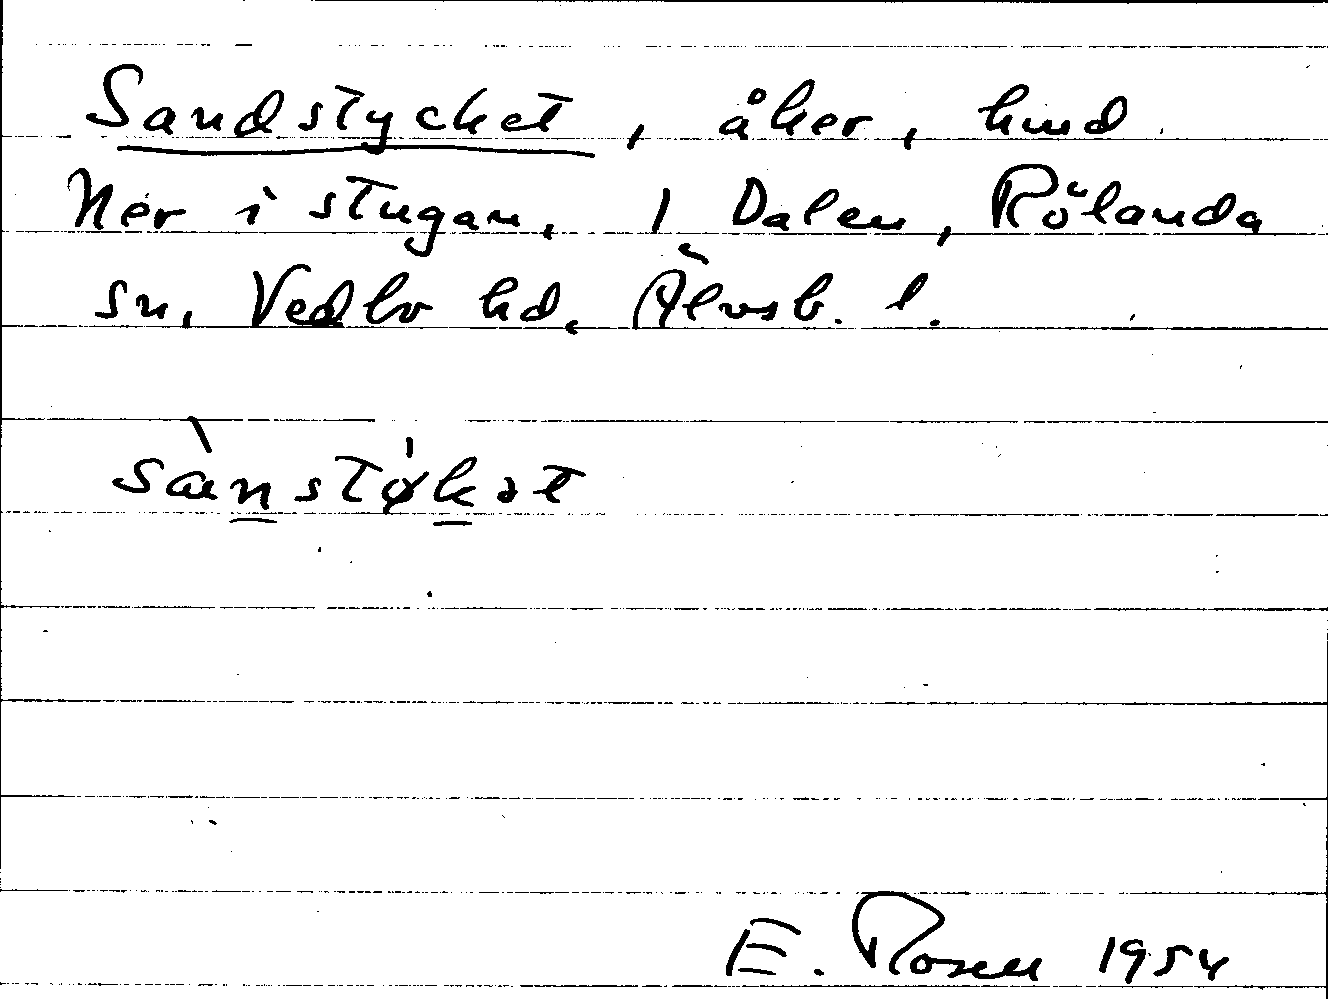 Sandstycket, åker, hmd
Ner i stugan, 1 Dalen, Rölanda
sn, Vedbo hd, Älvsb. l.
sànstø̍kət
E. Rosen 1954